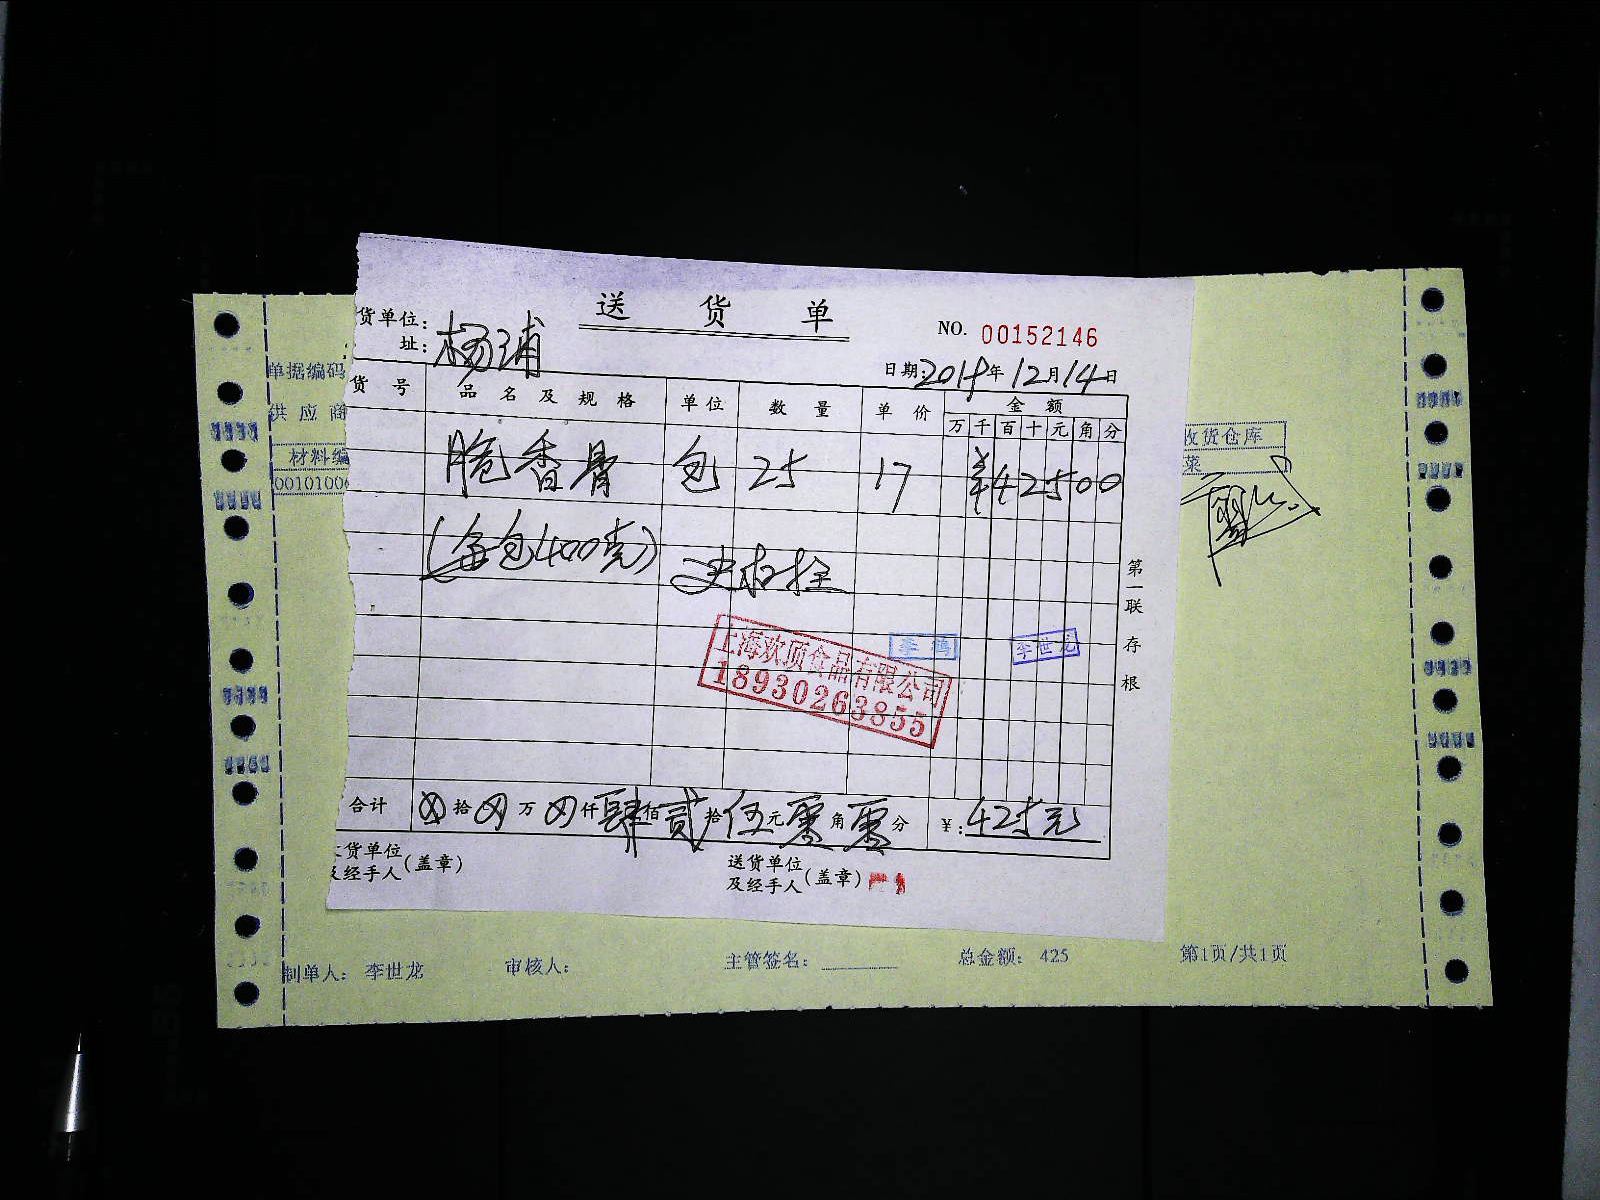 送 货 单
NO. 00152146
货单位: 杨浦
址:
日期: 2018年12月14日
货 号 品 名 及 规 格 单位 数 量 单 价 金 额
万 千 百 十 元 角 分
脆香骨 包 25 17 ¥42500
(每包400克)
第一联存根
李世龙
上海欢顶食品有限公司
18930263855
合计 拾 万 仟肆佰贰拾伍元零角零分 ¥: 425元
货单位
及经手人(盖章)
送货单位
及经手人(盖章)
单据编码
供 应 商
材料编
0010100
收货仓库
菜
制单人: 李世龙 审核人: 主管签名: 总金额: 425 第1页/共1页